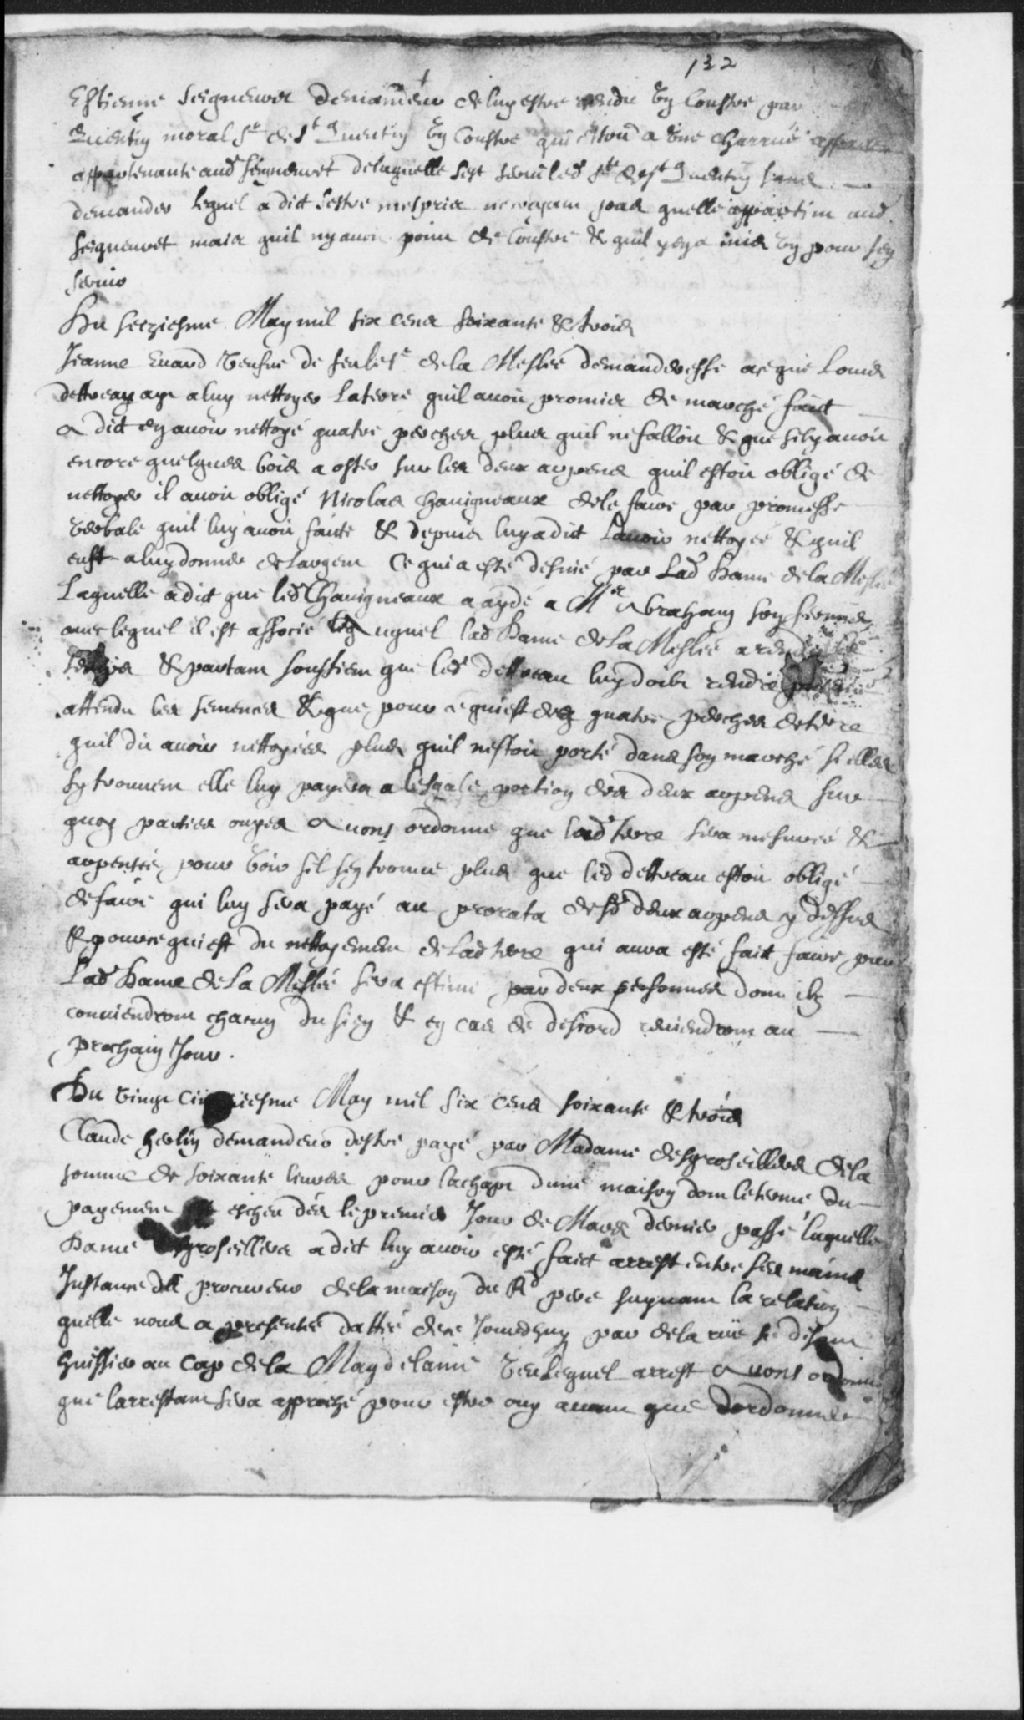 132
Estienne Seigneuret demandeur de luy estre rendu un coustre par
Quentin moral Sr de St Quentin un coustre qui estoit a une charruë
appartenante aud Seigneuret de laquelle sest servi led Sr de St Quentin sans
demander lequel a dict sestre mespris ne croyant pas quelle appartint aud
Seigneuret mais quil ny avoit point de coustre & quil y en a mis un pour sen
servir
Du seziesme May mil six cens soixante & trois
Jeanne Evard veufve de feu le Sr de la Meslee demanderesse a ce que Louis
detreau aye a luy nettoyer la terre quil avoit promis de marché faict
a dict en avoir nettoyé quatre perches plus quil ne falloit & que sil y avoit
encore quelques bois a oster sur les deux arpens quil estoit obligé de
nettoyer il avoit obligé Nicolas Chauigneaux de le faire par promesse
verbale quil luy avoit faite & depuis luy a dit lauoir nettoyée & quil
eust a luy donner de largent ce qui a esté desnié par lad Dame de la Meslée
Laquelle a dict que led Chauigneaux a aydé a Mr Abraham son fermier
avec lequel il est associé & auquel lad Dame de la Meslée a
& partant soustient que led detreau luy doibt rendre
attendu les semences & que pour ce qui est des quatre perches de terre
quil dit avoir nettoyées plus quil nestoit porté dans son marché si elles
sy trouvent elle luy payera a lesgale portion des deux arpens sur
quoy parties ouyes Avons ordonné que lad terre sera mesurée &
arpentée pour voir sil sen trouve plus que led detreau estoit obligé
de faire qui luy sera payé au prorata desd deux arpens cy dessus
& pour ce qui est du nettoyement de lad terre qui aura esté fait faire par
Lad Dame de la Meslée sera estimé par deux personnes dont ils
conviendront chacun du sien & en cas de descord reviendront au
prochain Jour.
Du vingt cinquiesme May mil six cens soixante & trois
Claude herlin demandeur destre payé par Madame desgroseillers de la
somme de soixante livres pour lachapt dune maison dont le terme du
payement est escheu dès le premier Jour de Mars dernier passé laquelle
Dame desgroseillers a dict luy avoir esté faict arrest entre ses mains
Instance du procureur de la maison du Rd pere suyvant la relation
quelle nous a presentée dattée de ce Jourdhuy par de la ruë se disant
huissier au cap de la Magdelaine Veu lequel arrest Avons ordonné
que larrestant sera approché pour estre ouy avant que dordonner